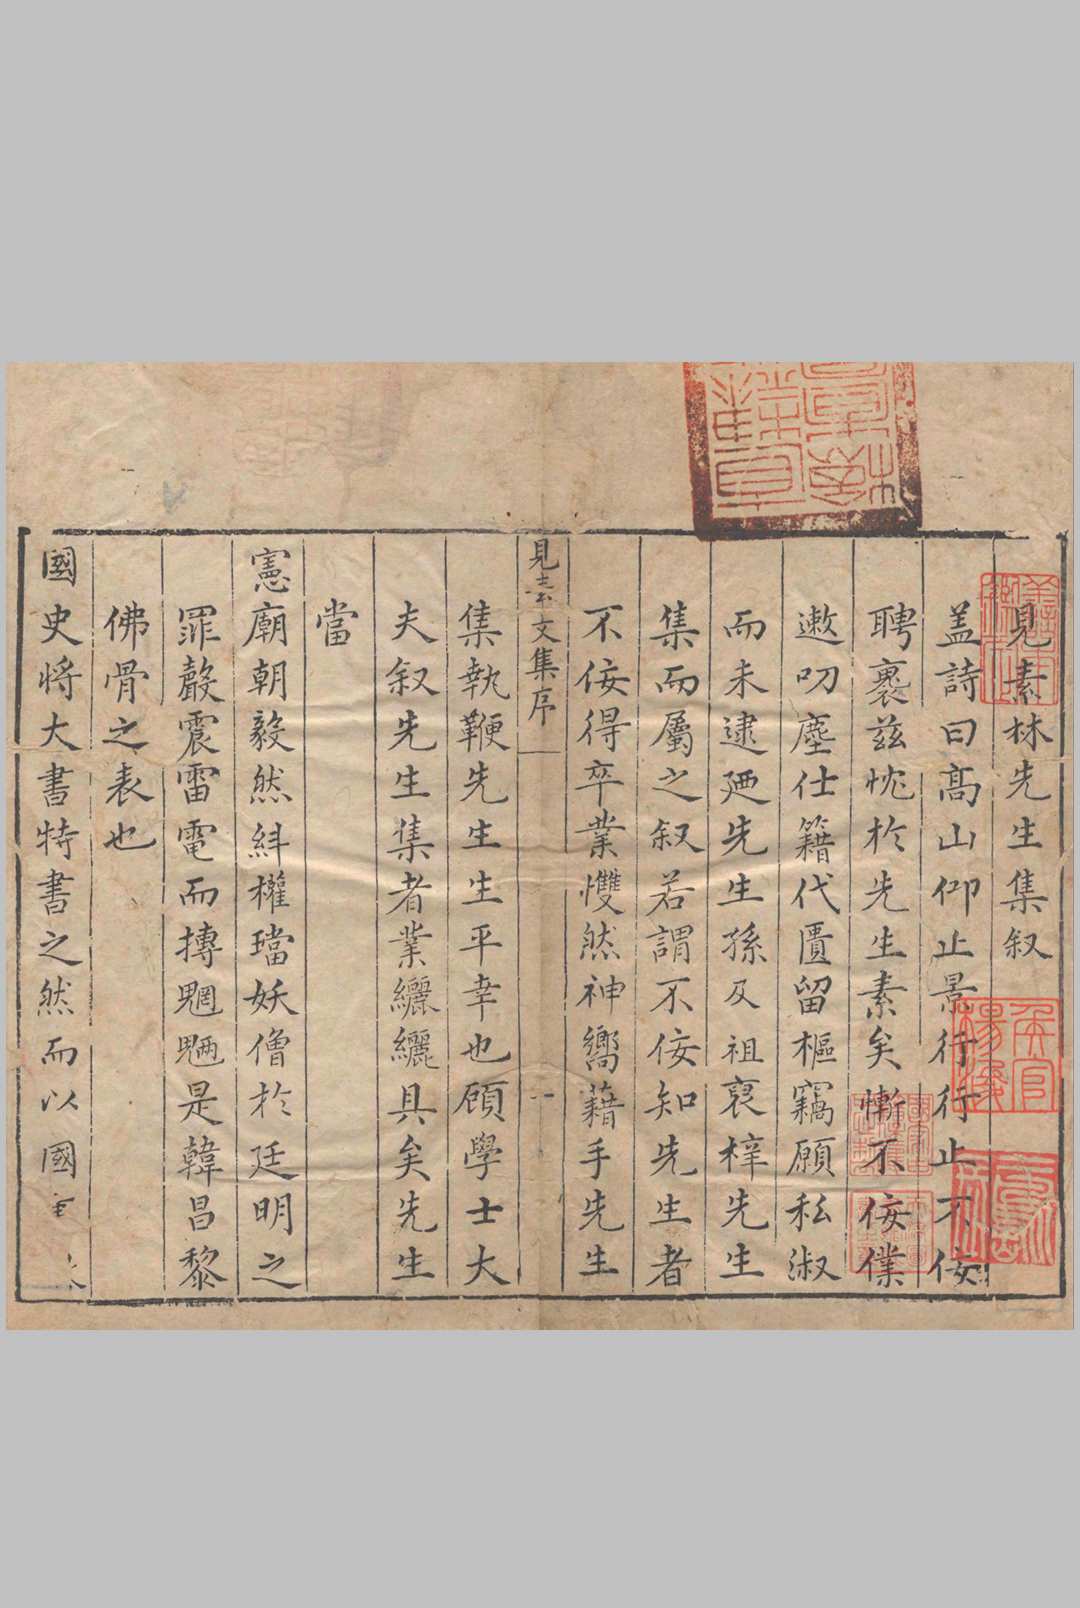 見素林先生集叙
盖詩曰高山仰止景行行止不佞
聘褱茲忱於先生素矣慚不佞僕
遫叨塵仕籍代匱留樞竊願私淑
而未逮廼先生孫及祖裒梓先生
集而屬之叙若謂不佞知先生者
不佞得卒業戄然神嚮藉手先生
見素文集序
一
集執鞭先生生平幸也顧學士大
夫叙先生集者業纚纚具矣先生
當
憲廟朝毅然糾權璫妖僧於廷明之
罪聲震雷電而摶魍魎是韓昌黎
佛骨之表也
國史將大書特書之然而以國